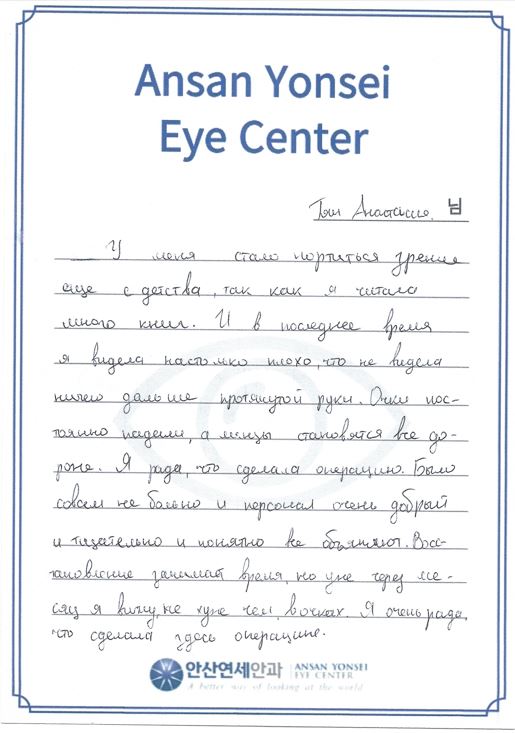 Ansan Yonsei
Eye Center
Тян Анастасия. 님
У меня стало портиться зрение
еще с детства, так как я читала
много книг. И в последнее время
я видела настолько плохо, что не видела
ничего дальше протянутой руки. Очки пос-
тоянно падали, а линзы становятся все до-
роже. Я рада, что сделала операцию. Было
совсем не больно и персонал очень добрый
и тщательно и понятно все объясняют. Восс-
тановление занимает время, но уже через ме-
сяц я вижу не хуже чем в очках. Я очень рада,
что сделала здесь операцию.
안산연세안과 ANSAN YONSEI
EYE CENTER
A better way of looking at the world